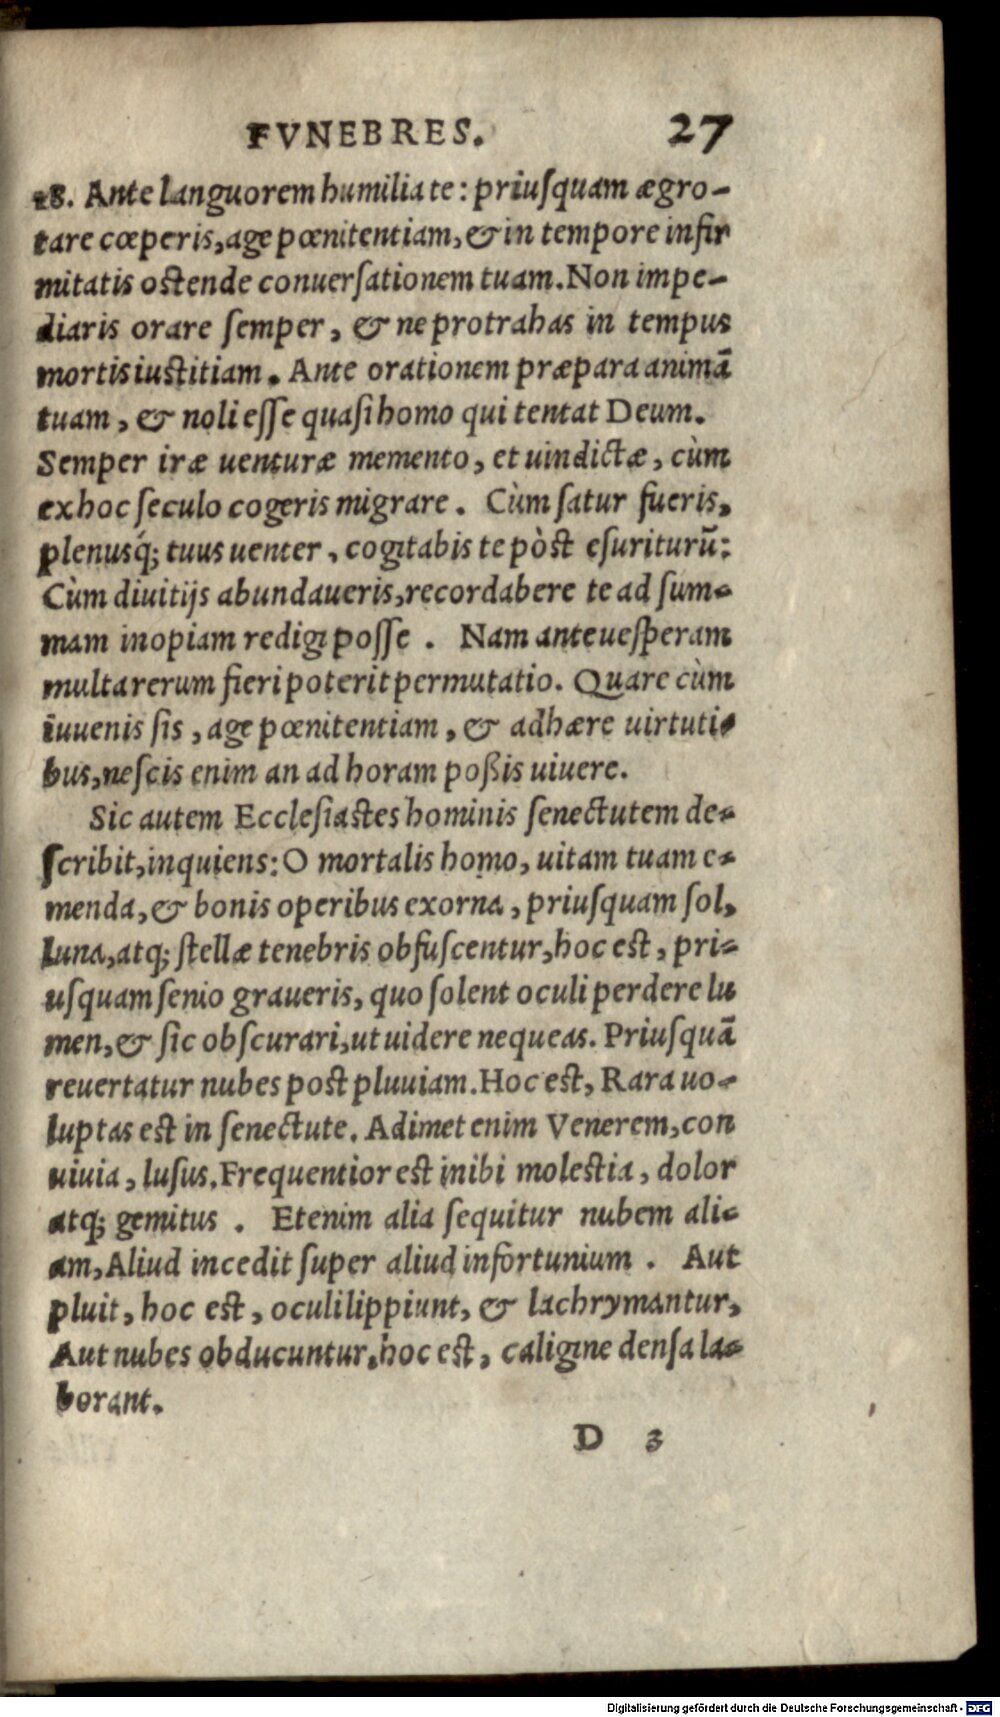 FVNEBRES. 27
18. Ante languorem humilia te: priuſquam ægro-
tare cœperis, age pœnitentiam, & in tempore infir
mitatis oſtende conuerſationem tuam. Non impe-
diaris orare ſemper, & ne protrahas in tempus
mortis iuſtitiam. Ante orationem præpara animā
tuam, & noli eſſe quaſi homo qui tentat Deum.
Semper iræ uenturæ memento, et uindictæ, cùm
ex hoc ſeculo cogeris migrare. Cùm ſatur fueris,
plenusq́; tuus uenter, cogitabis te pòſt eſuriturū:
Cùm diuitijs abundaueris, recordabere te ad ſum-
mam inopiam redigi poſſe. Nam ante ueſperam
multa rerum fieri poterit permutatio. Quare cùm
iuuenis ſis, age pœnitentiam, & adhære uirtuti-
bus, neſcis enim an ad horam poßis uiuere.
Sic autem Eccleſiaſtes hominis ſenectutem de-
ſcribit, inquiens: O mortalis homo, uitam tuam e-
menda, & bonis operibus exorna, priuſquam ſol,
luna, atq; ſtellæ tenebris obfuſcentur, hoc eſt, pri-
uſquam ſenio graueris, quo ſolent oculi perdere lu
men, & ſic obſcurari, ut uidere nequeas. Priuſquā
reuertatur nubes poſt pluuiam. Hoc eſt, Rara uo-
luptas eſt in ſenectute. Adimet enim Venerem, con
uiuia, luſus. Frequentior eſt inibi moleſtia, dolor
atq; gemitus. Etenim alia ſequitur nubem ali-
am, Aliud incedit ſuper aliud infortunium. Aut
pluit, hoc eſt, oculi lippiunt, & lachrymantur,
Aut nubes obducuntur, hoc eſt, caligine denſa la-
borant.
D 3
Digitalisierung gefördert durch die Deutsche Forschungsgemeinschaft - DFG